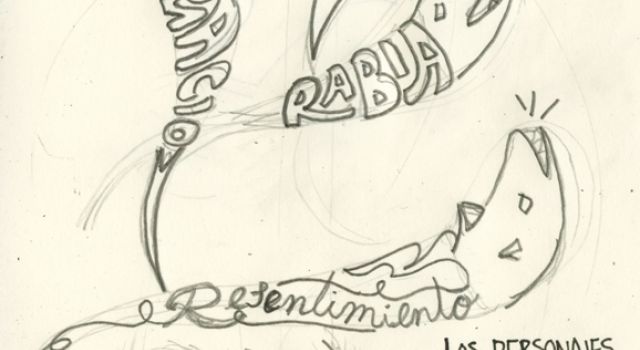 ANCIO
RABIA
Resentimiento
LOS PERSONAJES